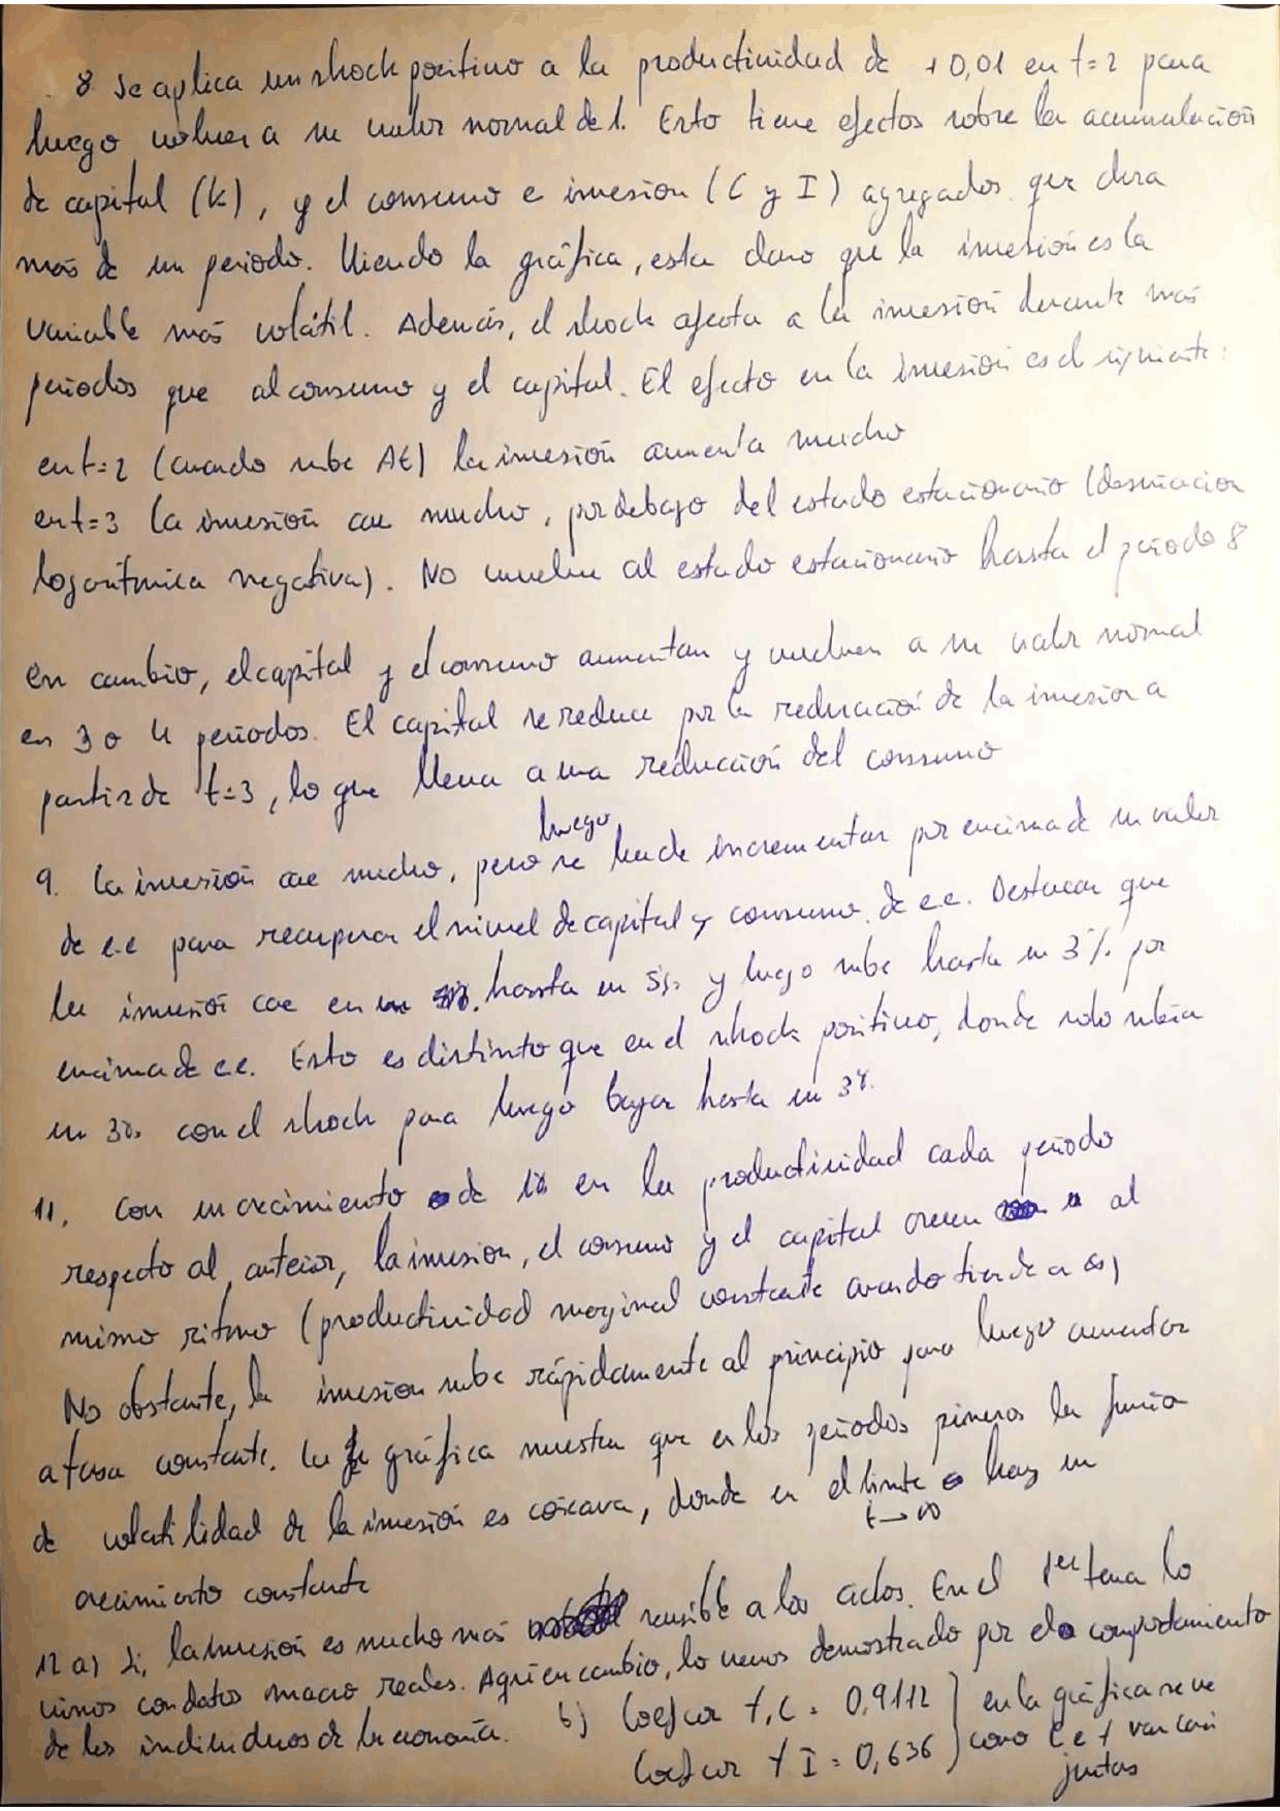 8 Se aplica un shock positivo a la productividad de +0,01 en t=2 para
luego volver a su valor normal de 1. Esto tiene efectos sobre la acumulación
de capital (K), y el consumo e inversión (C y I) agregados que dura
más de un periodo. Viendo la gráfica, esta claro que la inversión es la
variable más volátil. Además, el shock afecta a la inversión durante más
periodos que al consumo y el capital. El efecto en la inversión es el siguiente:
en t=2 (cuando sube At) la inversión aumenta mucho
en t=3 la inversión cae mucho, por debajo del estado estacionario (desviacion
logarítmica negativa). No vuelve al estado estacionario hasta el periodo 8
en cambio, el capital y el consumo aumentan y vuelven a su valor normal
en 3 o 4 periodos. El capital se reduce por la reducción de la inversion a
partir de t=3, lo que lleva a una reducción del consumo
luego
9. La inversión cae mucho, pero se ha de incrementar por encima de su valor
de e.e para recuperar el nivel de capital y consumo de e.e. Destacar que
la inversión cae en hasta un 5% y luego sube hasta un 3% por
encima de e.e. Esto es distinto que en el shock positivo, donde solo subía
un 3% con el shock para luego bajar hasta un 3%.
11. Con un crecimiento de 1% en la productividad cada periodo
respecto al anterior, la inversion, el consumo y el capital crecen al
mismo ritmo (productividad marginal constante cuando tiende a ∞)
No obstante, la inversion sube rápidamente al principio para luego aumentar
a tasa constante. La gráfica muestra que en los periodos primeros la función
de volatilidad de la inversión es cóncava, donde en el limite hay un
t→∞
crecimiento constante
12 a) Si, la inversión es mucho más sensible a los ciclos. En el 1er tema lo
vimos con datos macro reales. Aqui en cambio, lo vemos demostrado por el comportamiento
de los individuos de la economía.
b) Coef cor Y,C = 0,9112
Coef cor Y I = 0,636
en la gráfica se ve
como C e Y van casi
juntas